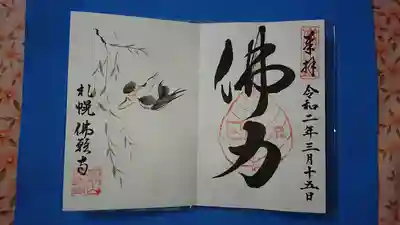 奉拝
令和二年三月十五日
佛力
札幌佛願寺